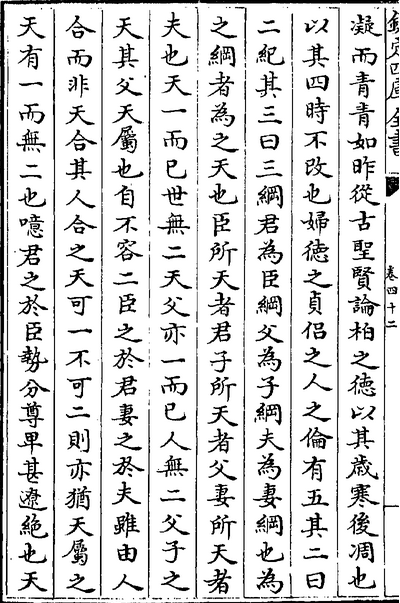 欽定四庫全書
卷四十二
凝而青青如昨從古聖賢論柏之徳以其歳寒後凋也
以其四時不改也婦徳之貞侣之人之倫有五其二曰
二紀其三曰三綱君為臣綱父為子綱夫為妻綱也為
之綱者為之天也臣所天者君子所天者父妻所天者
夫也天一而已世無二天父亦一而已人無二父子之
天其父天屬也自不容二臣之於君妻之於夫雖由人
合而非天合其人合之天可一不可二則亦猶天屬之
天有一而無二也噫君之於臣勢分尊卑甚遼絶也天